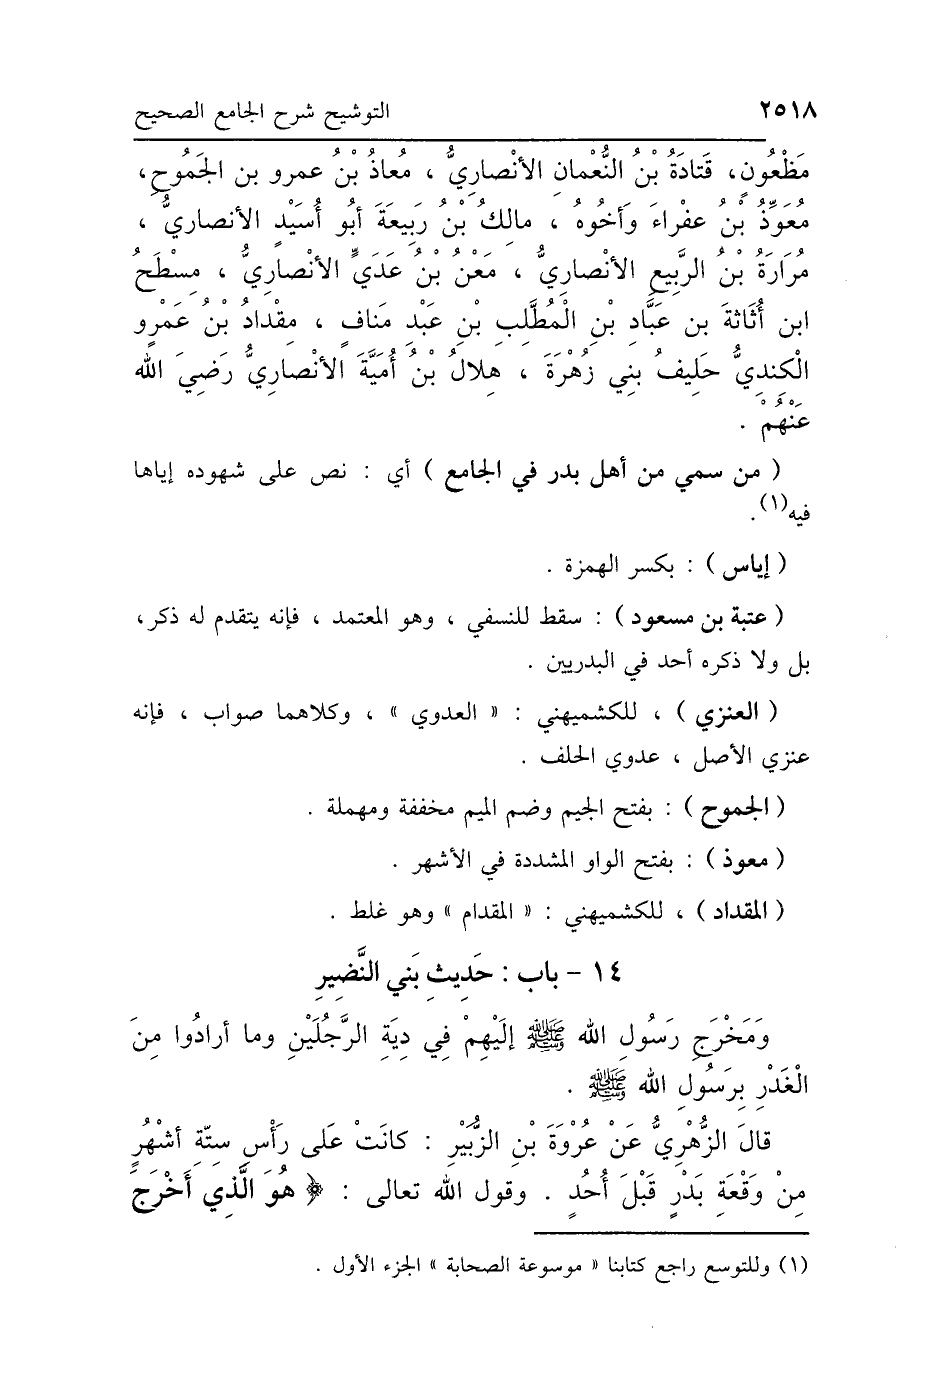 ٢٥١٨ التوشيح شرح الجامع الصحيح
مَظْعُونٍ، قَتَادَةُ بْنُ النُّعْمانِ الأنْصارِيُّ ، مُعاذُ بْنُ عمرِو بنِ الجَموحِ،
مُعَوِّذُ بْنُ عفْراءَ وَأخُوهُ ، مالكُ بْنُ رَبِيعَةَ أبُو أُسَيْدٍ الأنصاريُّ ،
مُرَارَةُ بْنُ الرَّبِيعِ الأنْصارِيُّ ، مَعْنُ بْنُ عَدَيٍّ الأنْصارِيُّ ، مِسْطَحُ
ابن أُثَاثةَ بن عَبَّادِ بْنِ الْمُطَّلِبِ بنِ عَبْدِ مَنافٍ ، مِقْدادُ بْنُ عَمْرٍو
الْكِنديُّ حَلِيفُ بَنِي زُهْرَةَ ، هِلالُ بْنُ أُمَيَّةَ الأنْصارِيُّ رَضِيَ الله
عَنْهُمْ .
( من سمي من أهل بدر في الجامع ) أي : نص على شهوده إياها
فيه(١).
( إياس ) : بكسر الهمزة .
( عتبة بن مسعود ) : سقط للنسفي ، وهو المعتمد ، فإنه يتقدم له ذكر،
بل ولا ذكره أحد في البدريين .
( العنزي ) ، للكشميهني : « العدوي » ، وكلاهما صواب ، فإنه
عنزي الأصل ، عدوي الحلف .
( الجموح ) : بفتح الجيم وضم الميم مخففة ومهملة .
( معوذ ) : بفتح الواو المشددة في الأشهر .
( المقداد ) ، للكشميهني : « المقدام » وهو غلط .
١٤ - باب : حَدِيثِ بَنِي النَّضِيرِ
وَمَخْرَجِ رَسُولِ الله ﷺ إلَيْهِمْ فِي دِيَةِ الرَّجُلَيْنِ وما أرادُوا مِنَ
الْغَدْرِ بِرَسُولِ الله ﷺ .
قالَ الزُّهْرِيُّ عَنْ عُرْوَةَ بْنِ الزُّبَيْرِ : كانَتْ عَلى رَأْسِ سِتَّةِ أشْهُرٍ
مِنْ وَقْعَةِ بَدْرٍ قَبْلَ أُحُدٍ . وقول الله تعالى : ﴿ هُوَ الَّذِي أَخْرَجَ
(١) وللتوسع راجع كتابنا « موسوعة الصحابة » الجزء الأول .